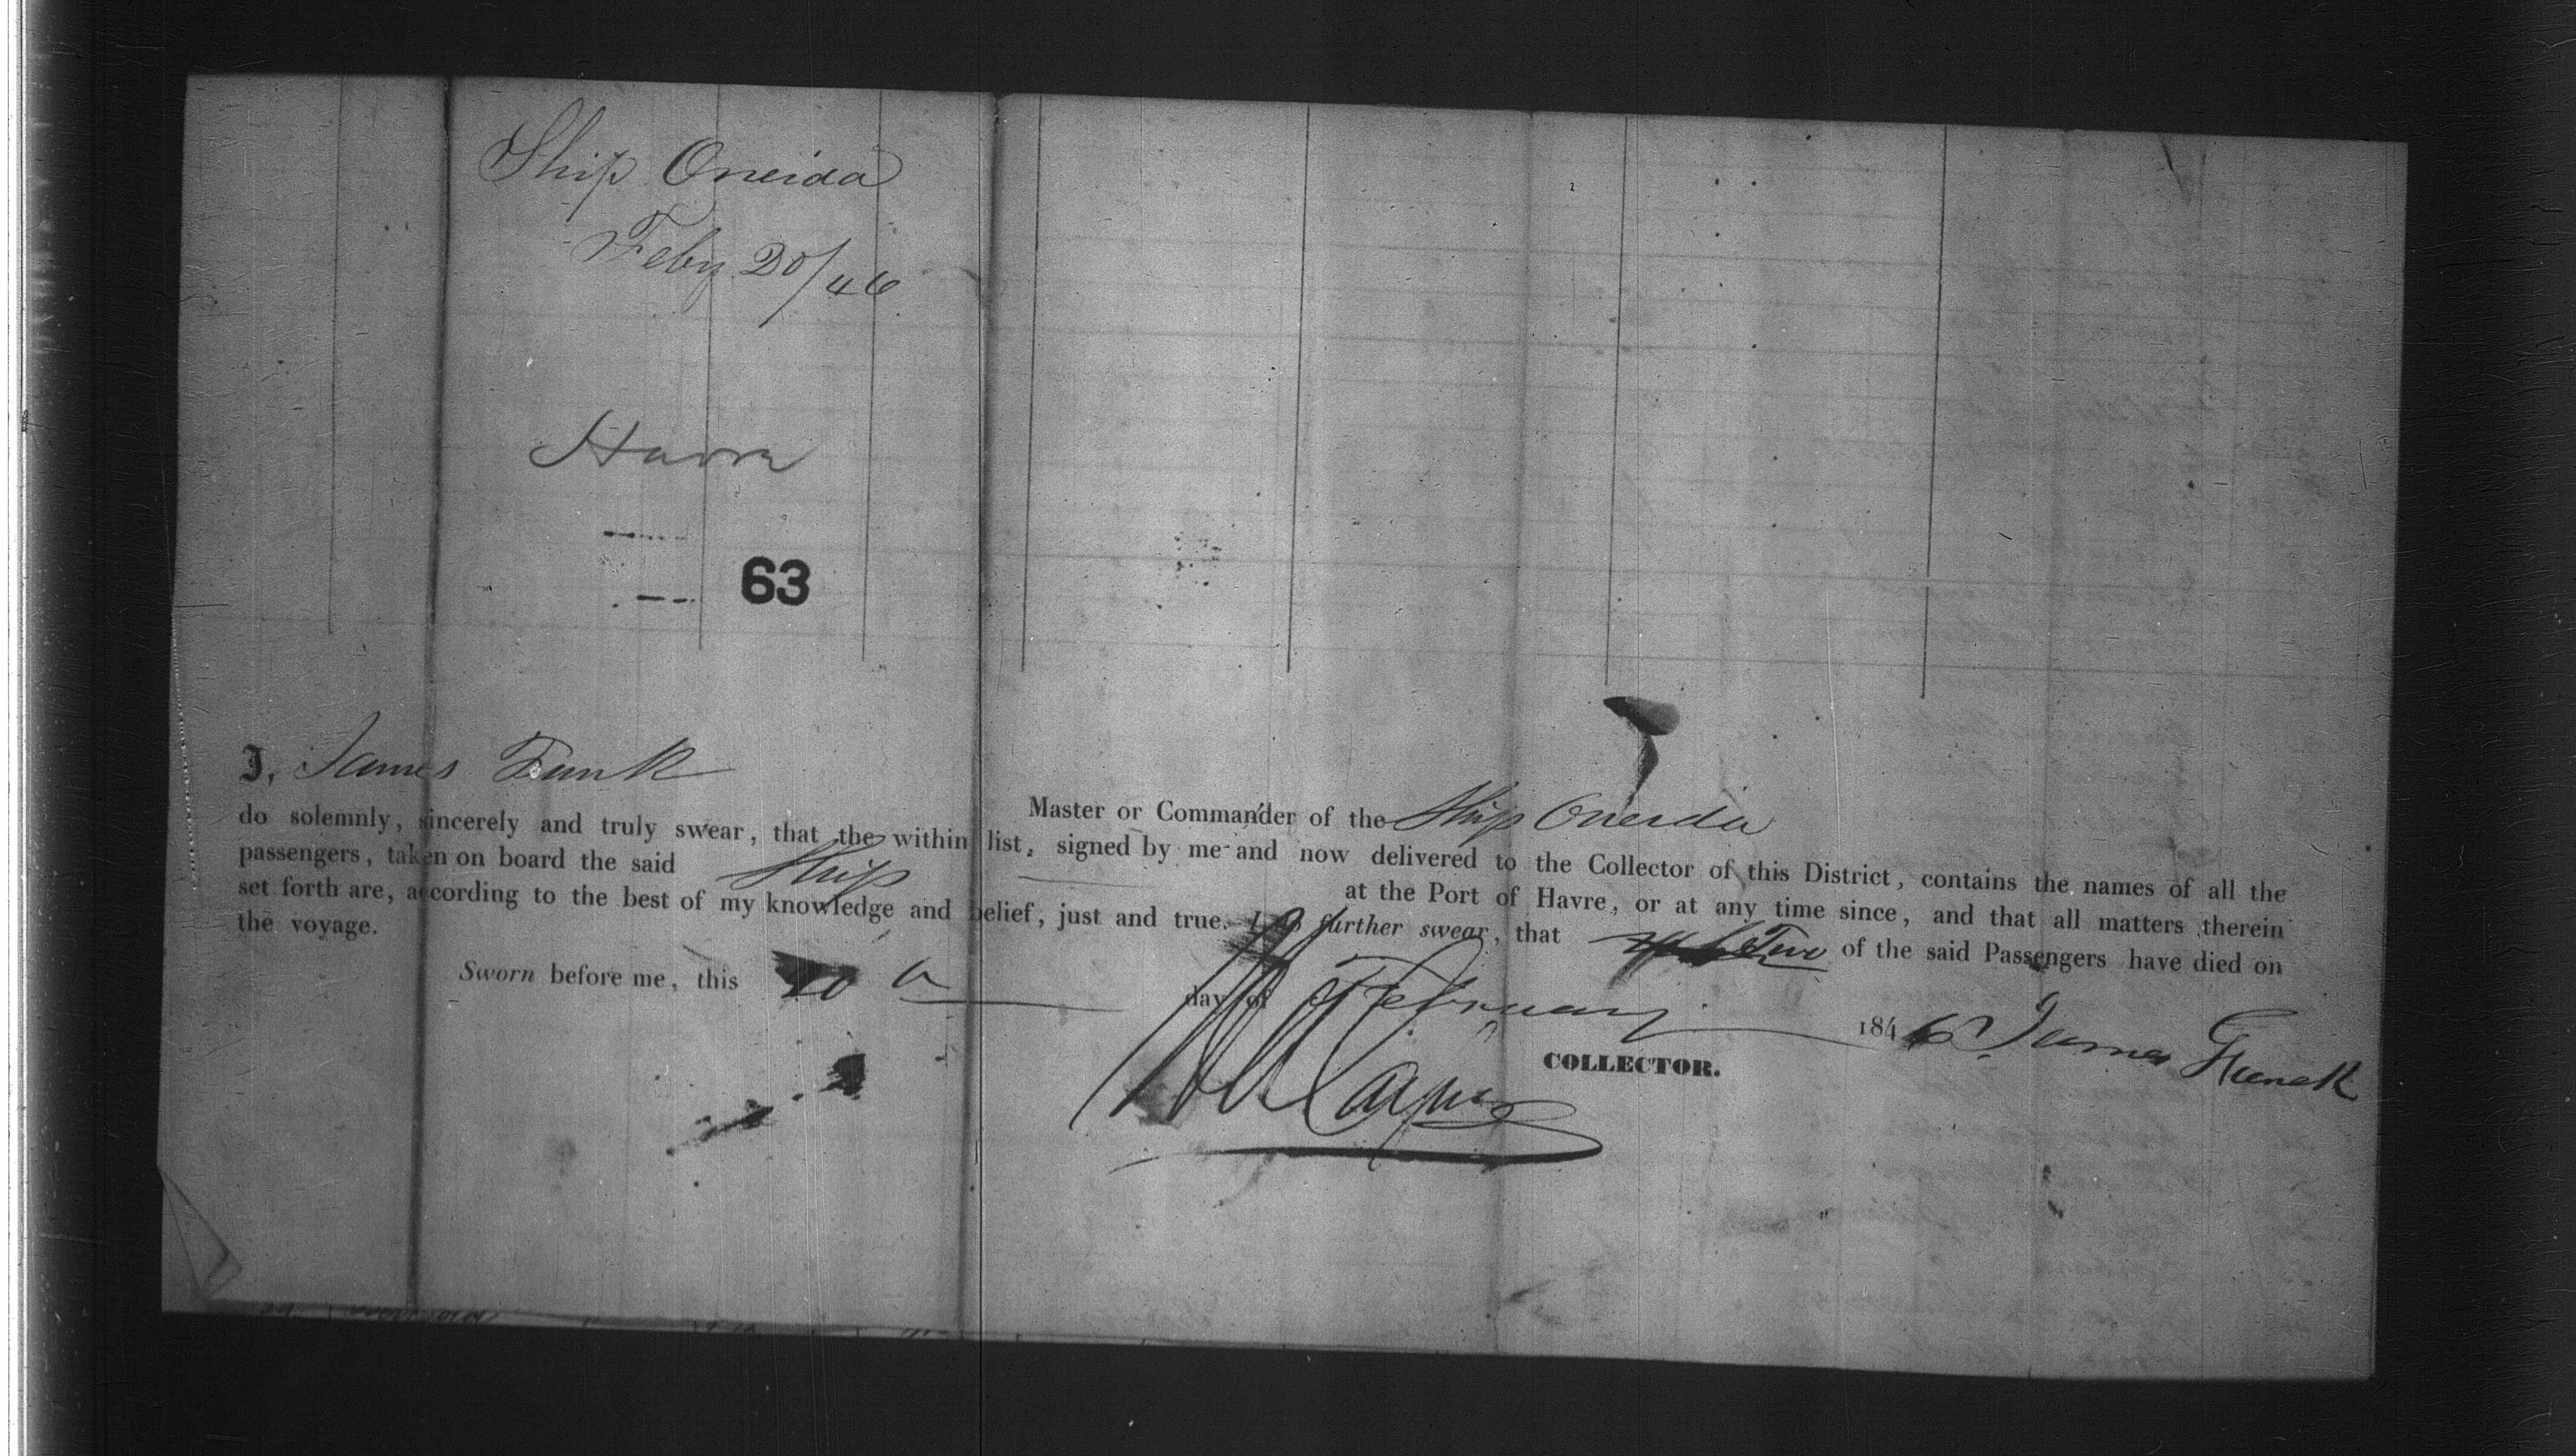 Ship Oneida
Feby 20/46
Havre
63
I, James Funk Master or Commander of the Ship Oneida
do solemnly, sincerely and truly swear, that the within list, signed by me and now delivered to the Collector of this District, contains the names of all the
passengers, taken on board the said Ship at the Port of Havre, or at any time since, and that all matters therein
set forth are, according to the best of my knowledge and belief, just and true. I do further swear, that Two of the said Passengers have died on
the voyage.
Sworn before me, this 20 day of February 1846 James Funck
COLLECTOR.